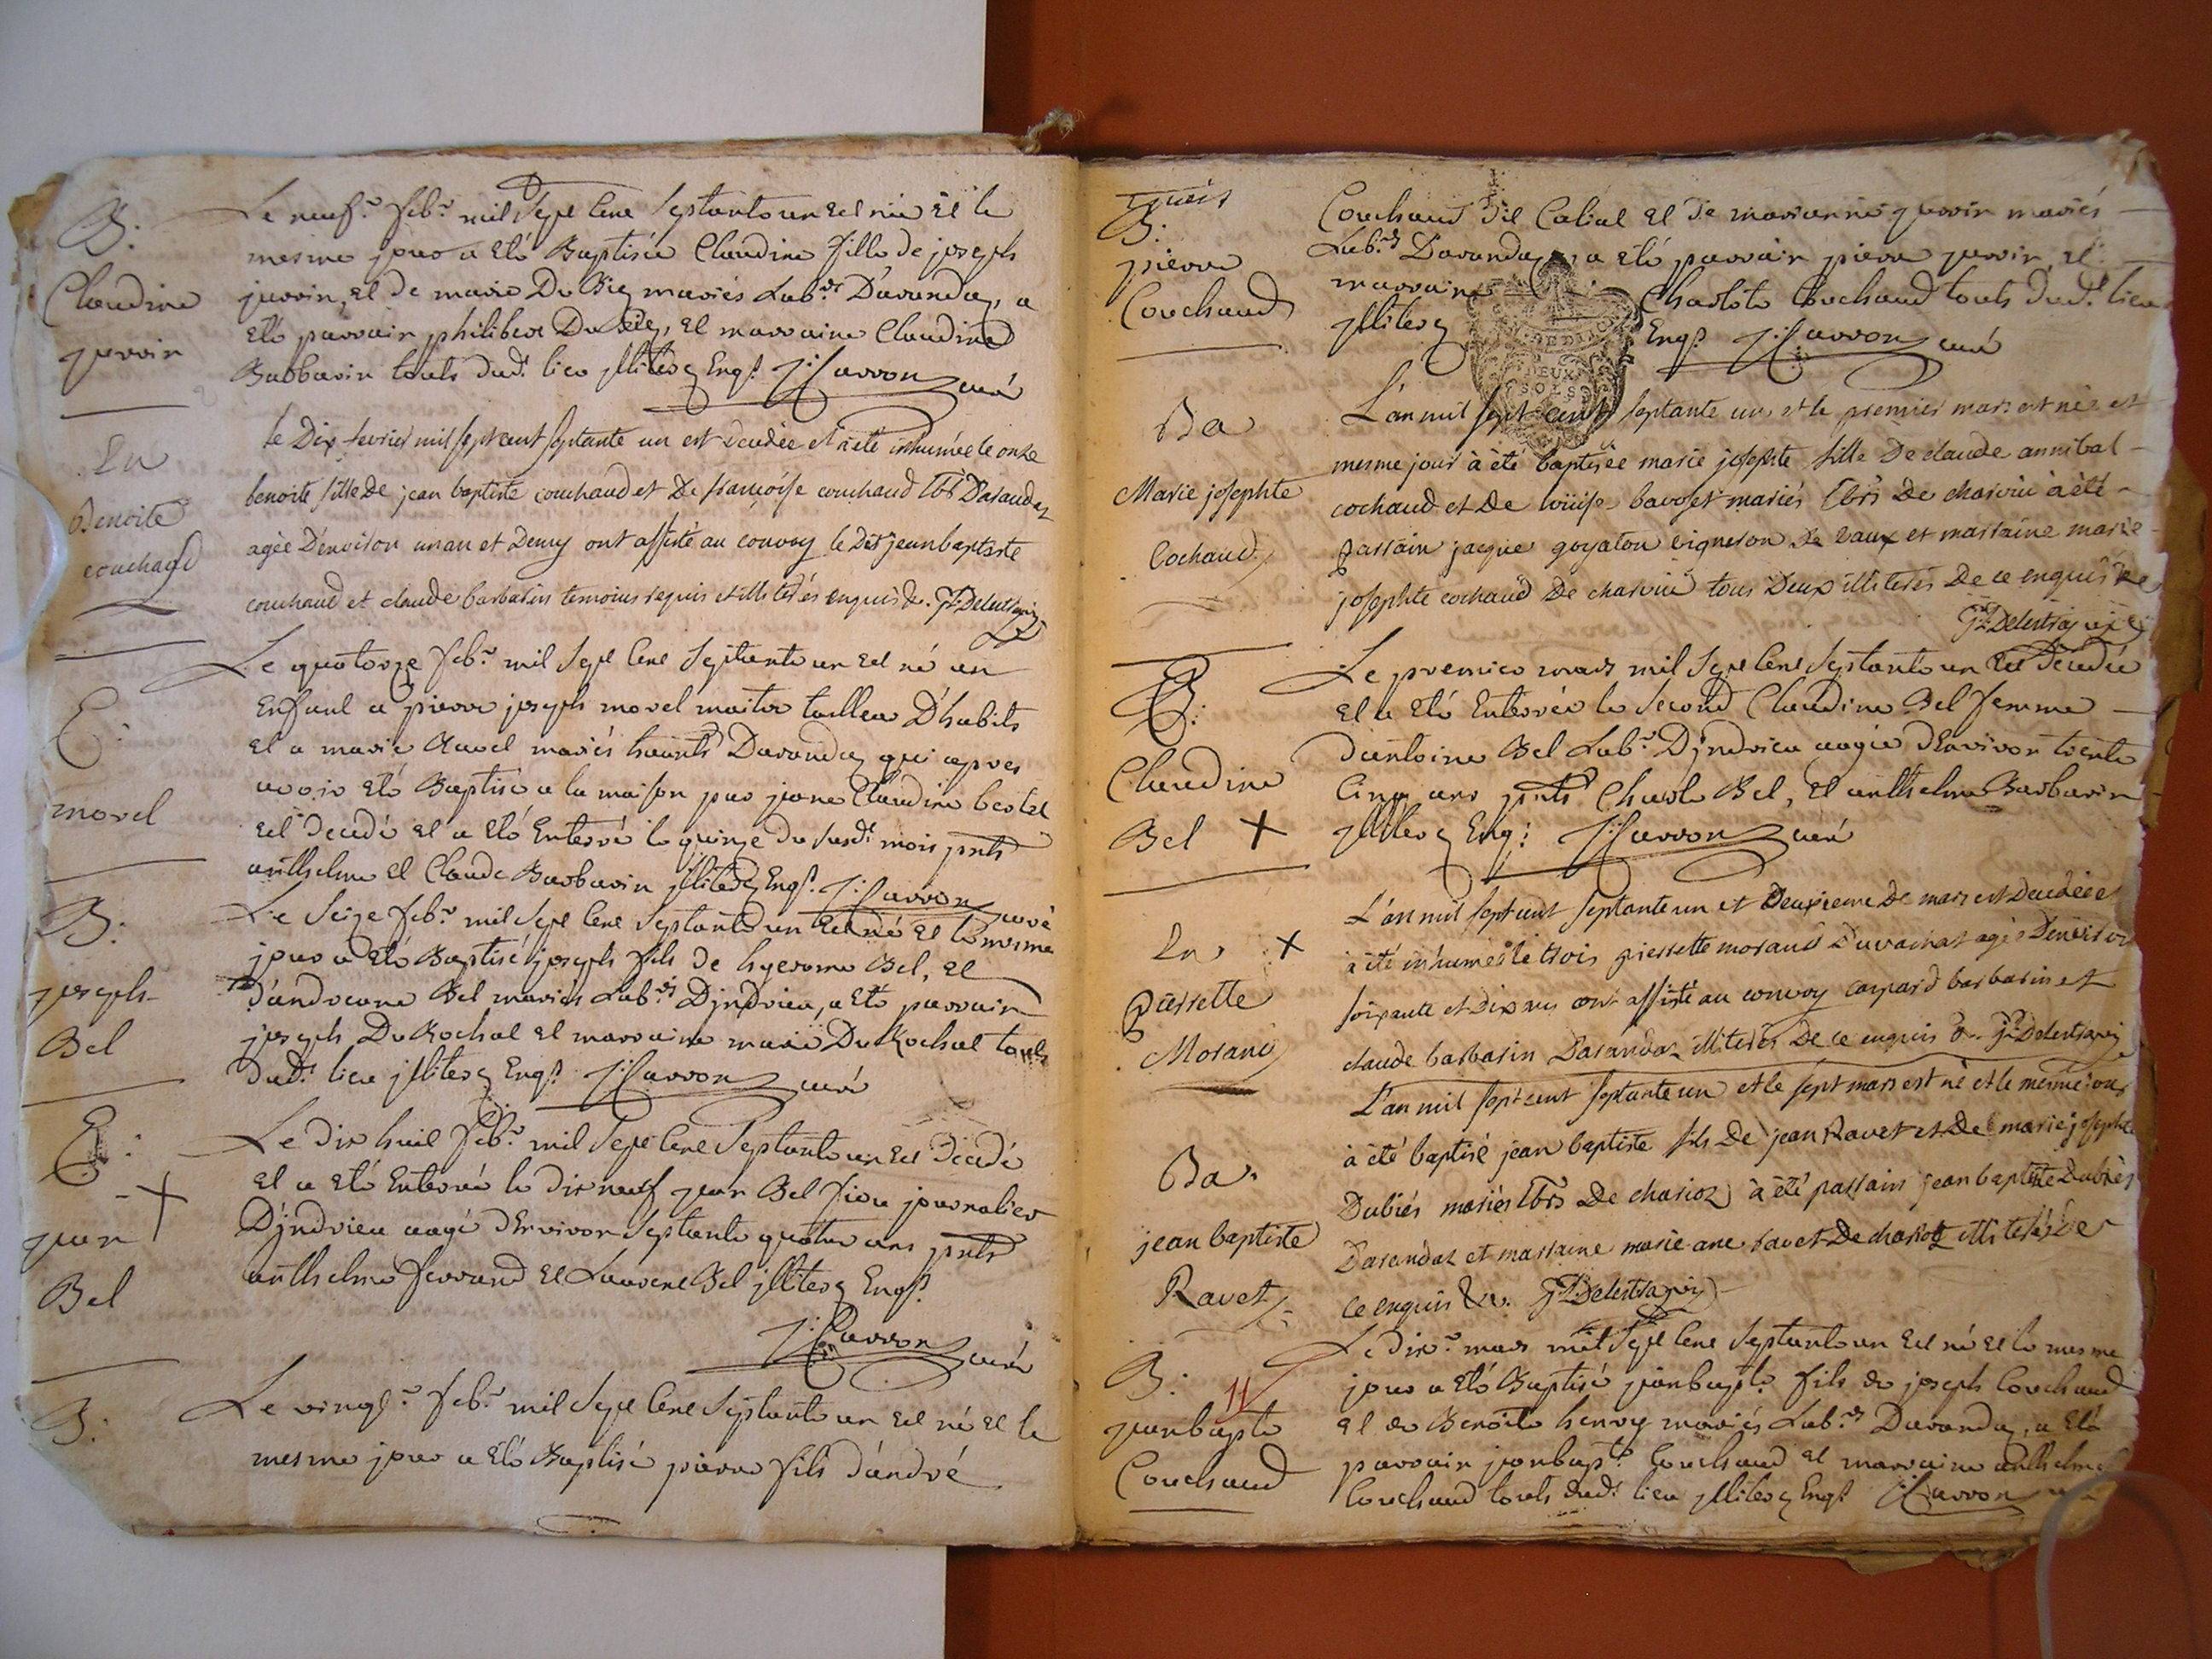 B:
Claudine
juvoin
Le neuf.e feb.r mil sept cent septante un est née et le
mesme jour a eté Baptisée Claudine fille de joseph
juvoin, et de marie Du Biez mariés Lab.rs D'avandaz, a
eté parrain philibert Du Biez, et marraine Claudine
Barbarin touts dud.t lieu jlliterez Enq.s J: Carron curé
En
Benoite
couchaud
le Dix fevrier mil sept cent septante un est decedée et a été inhumée le onze
benoite fille De jean baptiste couchaud et De françoise couchaud lbrs D'arandaz
agée D'environ un an et Demy ont assisté au convoy le Dit jean baptiste
couchaud et claude barbarin temoins requis et illiterés enquis &.
E:
morel
Le quatorze feb.r mil sept cent septante un est né un
Enfant a pierre joseph morel maitre tailleur D'habits
et a marie mariés D'arandaz qui apres
avoir eté Baptisé a la maison par jeane Claudine
est decedé et a eté Enterré le quinze du susd.t mois pnts
anthelme et Claude Barbarin jlliterez Enq.s J: Carron curé
B:
joseph
Bel
Le seize feb.r mil sept cent septante un est né et le mesme
jour a eté Baptisé joseph fils de hyerome Bel, et
d'andreane Bel mariés Lab.rs D'jndrieu, a eté parrain
joseph Du Rochat et marraine marie Du Rochat touts
dud.t lieu jlliterez Enq.s J: Carron curé
E:
+
jean
Bel
Le dix huit feb.r mil sept cent septante un est decedé
et a eté Enterré le dix neuf jean Bel journalier
D'jndrieu aagé d'Environ septante quatre ans pnts
anthelme ferrand et Laurent Bel jlliterez Enq.s
J: Carron curé
B:
Le vingt.e feb.r mil sept cent septante un est né et le
mesme jour a eté Baptisé pierre fils d'andré
B:
pierre
Couchaud
Couchaud dit et de marianne juvoin mariés
Lab.rs D'avandaz, a eté parrain pierre juvoin, et
marraine Charlote Couchaud touts dud.t lieu
jlliterez Enq.s J: Carron curé
Ba
Marie josephte
Cochaud
L'an mil sept cent septante un et le premier mars est née et
mesme jour à été baptisée marie josephte fille De claude annibal
cochaud et De louise mariés lbrs De charvin à été
parrain jacque goyaton vigneron De vaux et marraine marie
josephte cochaud De tous Deux illiterés De ce enquis
E:
Claudine
Bel +
Le premier mars mil sept cent septante un est decedée
et a eté Enterrée le second Claudine Bel femme
d'antoine Bel Lab.r D'jndrieu aagée d'Environ trente
Cinq ans pnts Charle Bel, et anthelme Barbarin
jlliterez Enq.s J: Carron curé
En +
Pierrette
Morand
L'an mil sept cent septante un et Deuxieme De mars est Decedée et
à été inhumée le trois pierrette morand agée D'environ
soixante et Dix ans ont assisté au convoy caspard barbarin et
claude barbarin D'arandaz illiterés De ce enquis &.
Ba
jean baptiste
Ravet
L'an mil sept cent septante un et le sept mars est né et le mesme jour
à été baptisé jean baptiste fils De jean Ravet et De marie josephte
Dubiés mariés lbrs De à été parrain jean baptiste Dubiés
D'arandaz et marraine marie ane Ravet De illiterés De
ce enquis &.
B: 11
jeanbapte
Couchaud
Le dix.e mars mil sept cent septante un est né et le mesme
jour a eté Baptisé jeanbap.te fils de joseph Couchaud
et de Benoite henry mariés Lab.rs D'avandaz, a eté
parrain jeanbap.te Couchaud et marraine anthelme
Couchaud touts dud.t lieu jlliterez Enq.s J: Carron